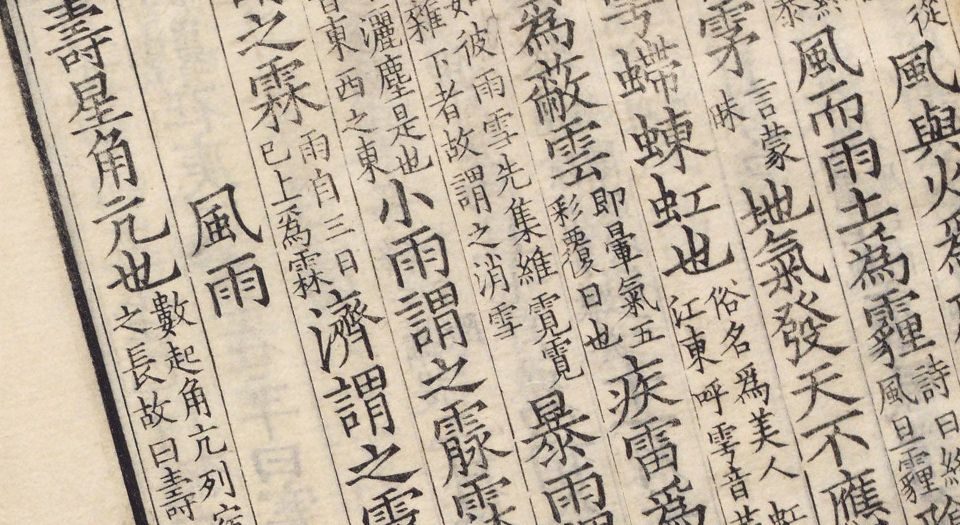 從
風與火為
風而雨土為霾
詩曰終
風且霾
雺
言蒙
昧
地氣發天不應
雩螮蝀虹也
俗名為美人虹
江東呼雩音
為蔽雲
即暈氣五
彩覆日也
疾雷為
如彼雨雪先集維霓霓
雜下者故謂之消雪
暴雨謂
灑塵是也
音東西之東
小雨謂之霡霂
謂之霖
雨自三日
已上為霖
濟謂之霽
風雨
壽星角亢也
數起角亢列宿
之長故曰壽